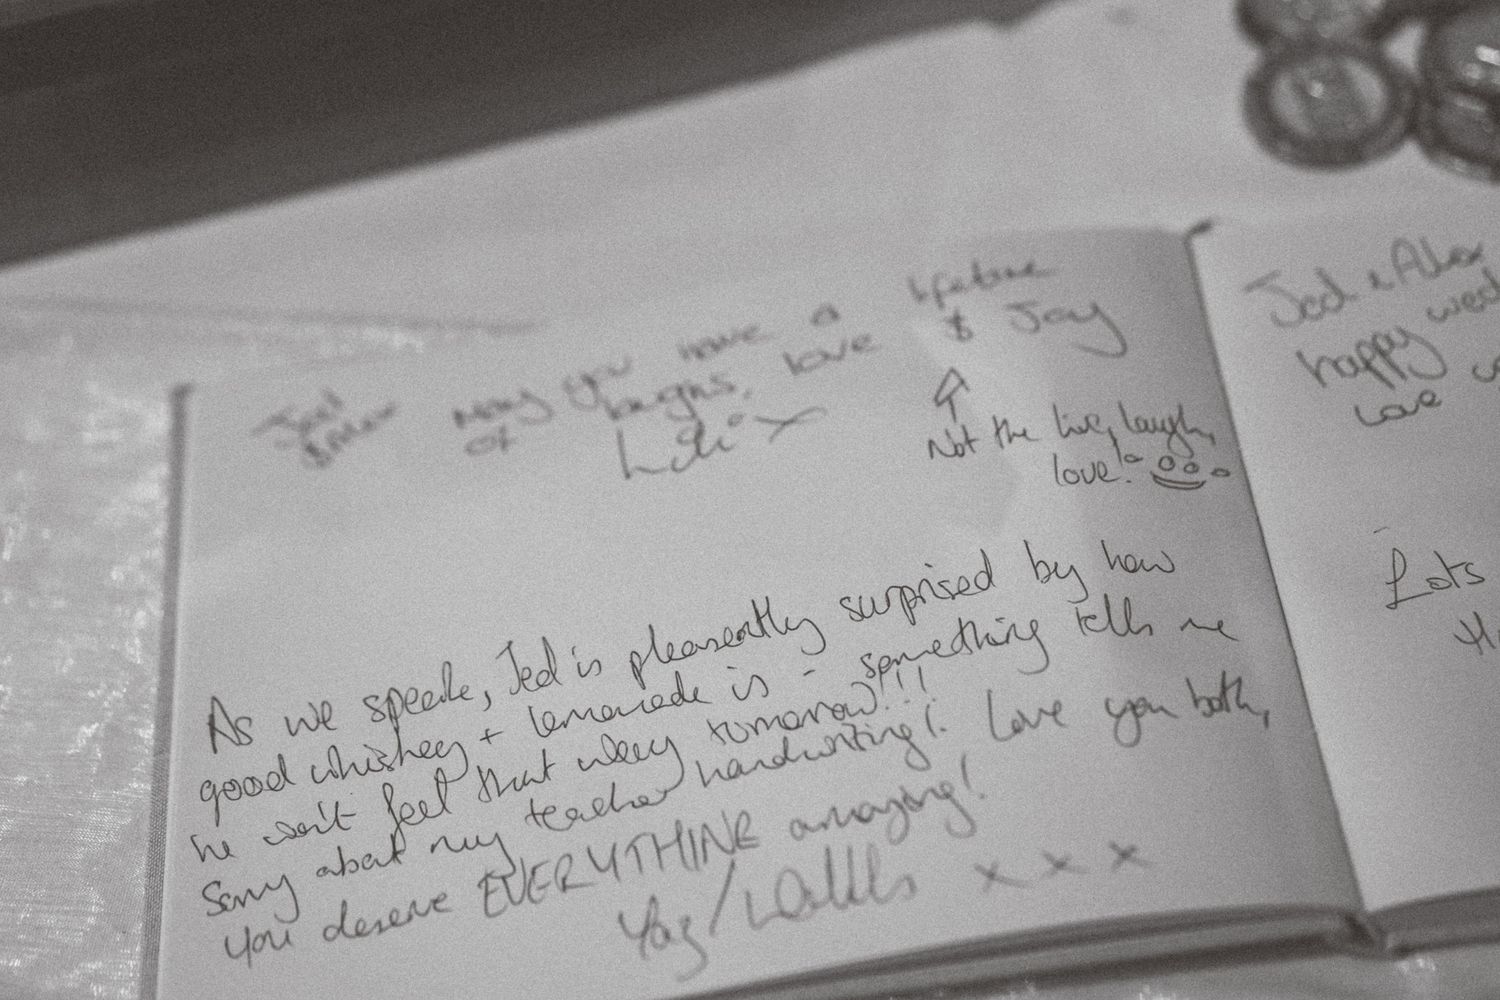 Jed
May you have a lifetime
of laughs, love & Joy
x
Not the live, laugh,
love!
As we speak, Jed is pleasently surprised by how
good whiskey + lemonade is - something tells me
he won't feel that way tomorrow!!!
Sorry about my teacher handwriting!. Love you both,
you deserve EVERYTHING amazing!
Yaz/ x x x
Jed & Alex
happy wed
Love
Lots